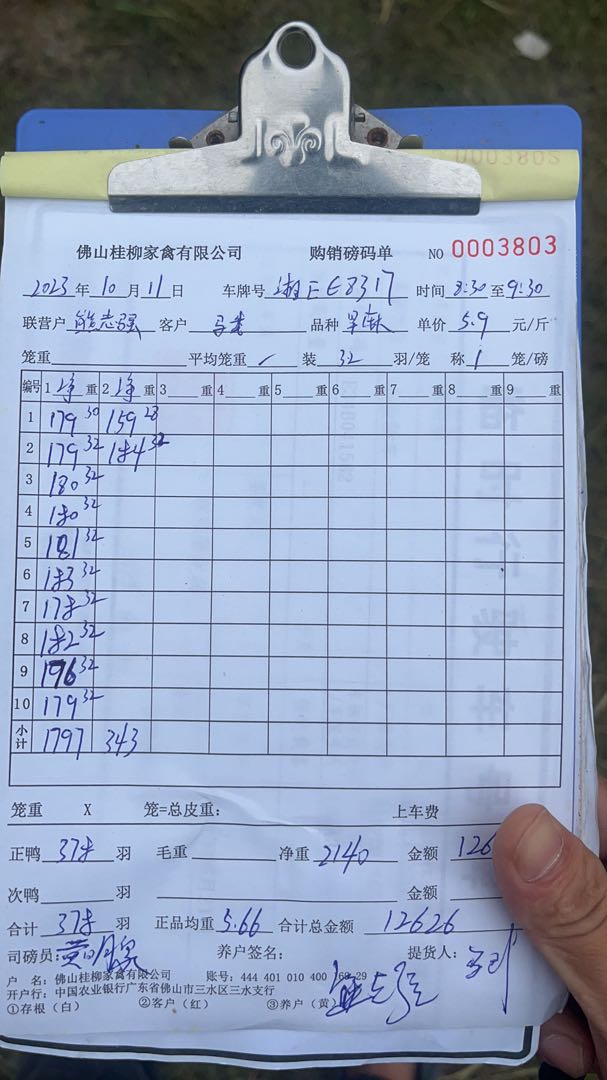 0003802
佛山桂柳家禽有限公司 购销磅码单 NO 0003803
2023年10月11日 车牌号 湘E E8317 时间 8:30至9:30
联营户 熊志强 客户 品种 单价 5.9 元/斤
笼重 平均笼重 装 32 羽/笼 称 1 笼/磅
编号 1 净 重 2 净 重 3 重 4 重 5 重 6 重 7 重 8 重 9 重
1 179 30 159 28
2 179 32 184 32
3 180 32
4 180 32
5 181 32
6 183 32
7 178 32
8 182 32
9 176 32
10 179 32
小计 1797 343
笼重 X 笼=总皮重: 上车费
正鸭 378 羽 毛重 净重 2140 金额 126
次鸭 羽 金额
合计 378 羽 正品均重 5.66 合计总金额 12626
司磅员: 养户签名: 提货人:
户 名: 佛山桂柳家禽有限公司 账号: 444 401 010 400 168 29
开户行: 中国农业银行广东省佛山市三水区三水支行 熊志强
①存根(白) ②客户(红) ③养户(黄)